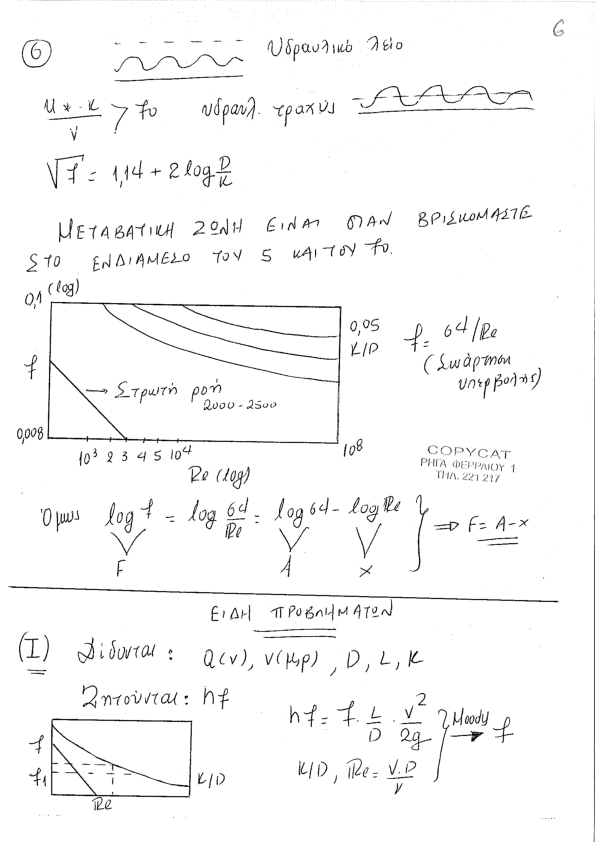 6
6 Υδραυλικό λείο
u* · k / ν > 70 υδραυλ. τραχύς
√f = 1,14 + 2 log D/K
ΜΕΤΑΒΑΤΙΚΗ ΖΩΝΗ ΕΙΝΑΙ ΟΤΑΝ ΒΡΙΣΚΟΜΑΣΤΕ
ΣΤΟ ΕΝΔΙΑΜΕΣΟ ΤΟΥ 5 ΚΑΙ ΤΟΥ 70.
0,1 (log)
f
0,008
→ Στρωτή ροή
2000-2500
10³ 2 3 4 5 10⁴ 10⁸
Re (log)
0,05
K/D
f = 64/Re
(Συνάρτηση
υπερβολής)
COPYCAT
ΡΗΓΑ ΦΕΡΡΑΙΟΥ 1
ΤΗΛ. 221 217
Όμως log f = log 64/Re = log 64 - log Re } ⇒ F = A - x
F A x
ΕΙΔΗ ΠΡΟΒΛΗΜΑΤΩΝ
(I) Δίδονται: Q(v), ν(μ,ρ), D, L, K
Ζητούνται: hf
f
f₁
Re
K/D
hf = f · L/D · v²/2g } Moody → f
K/D, Re = V.D/ν